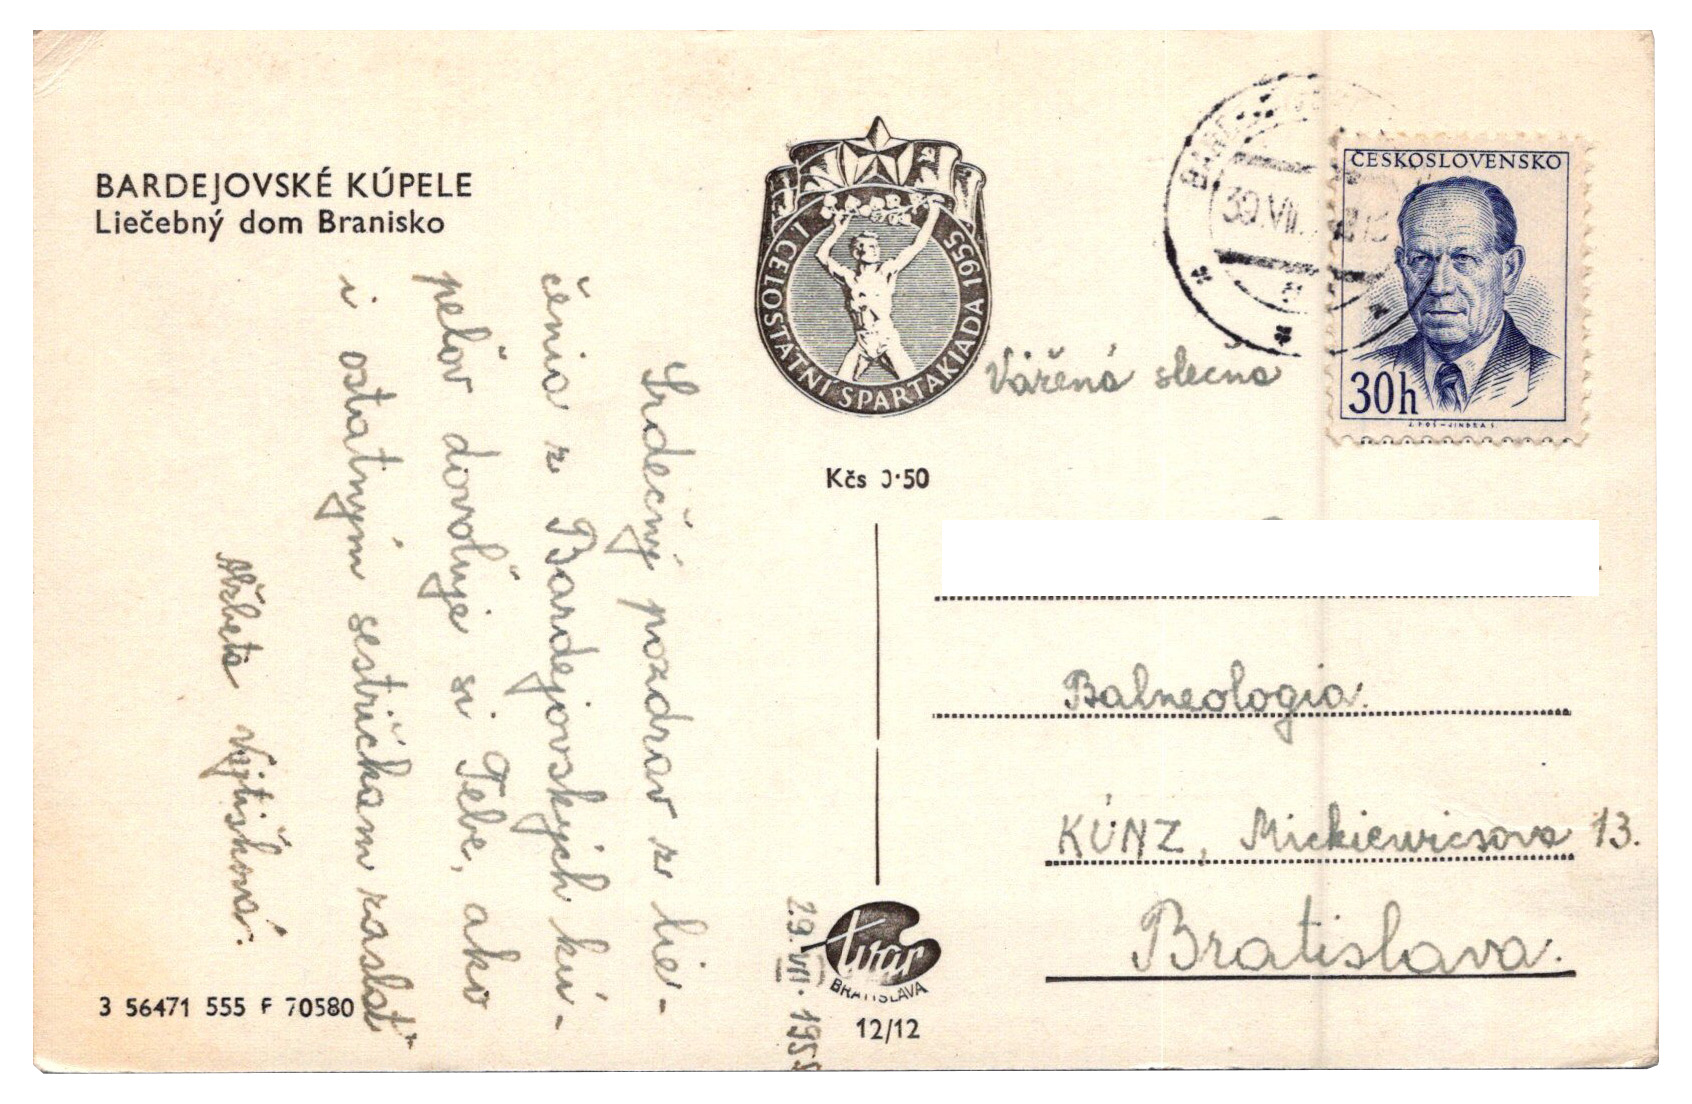 BARDEJOVSKÉ KÚPELE
Liečebný dom Branisko
Srdečný pozdrav z lie-
čenia z Bardejovských kú-
peľov dovoľuje si Tebe, ako
i ostatným sestričkam zaslať
Alžbeta Vojtišková.
29. VII. 1955
3 56471 555 F 70580
I. CELOSTÁTNÍ SPARTAKIÁDA 1955
Kčs 0·50
tvar
BRATISLAVA
12/12
30.VII.
ČESKOSLOVENSKO
30h
Vážená slečna
Balneologia.
KÚNZ, Mickiewiczova 13.
Bratislava.